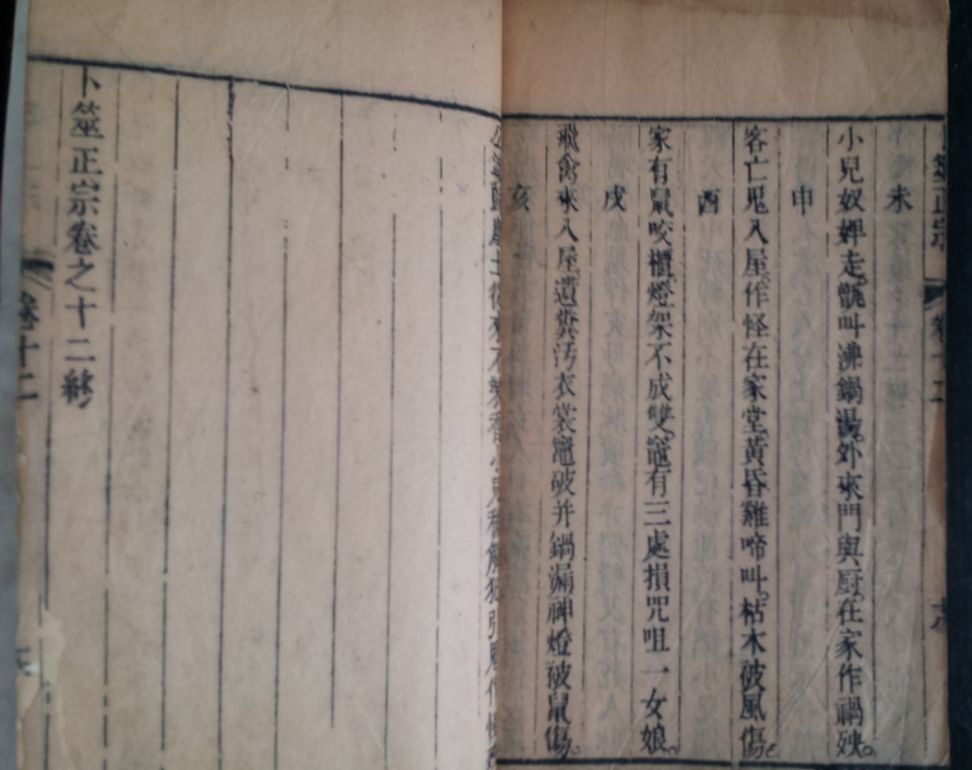 未
小兒奴婢走。甑叫沸鍋湯。外來門與厨。在家作禍殃。
申
客亡鬼入屋。作怪在家堂。黃昏雞啼叫。枯木被風傷。
酉
家有鼠咬櫃。燈架不成雙。竈有三處損。咒咀一女娘。
戌
飛禽來入屋。遺糞污衣裳。竈破并鍋漏。神燈被鼠傷。
亥
卜筮正宗卷之十二終
卷十二